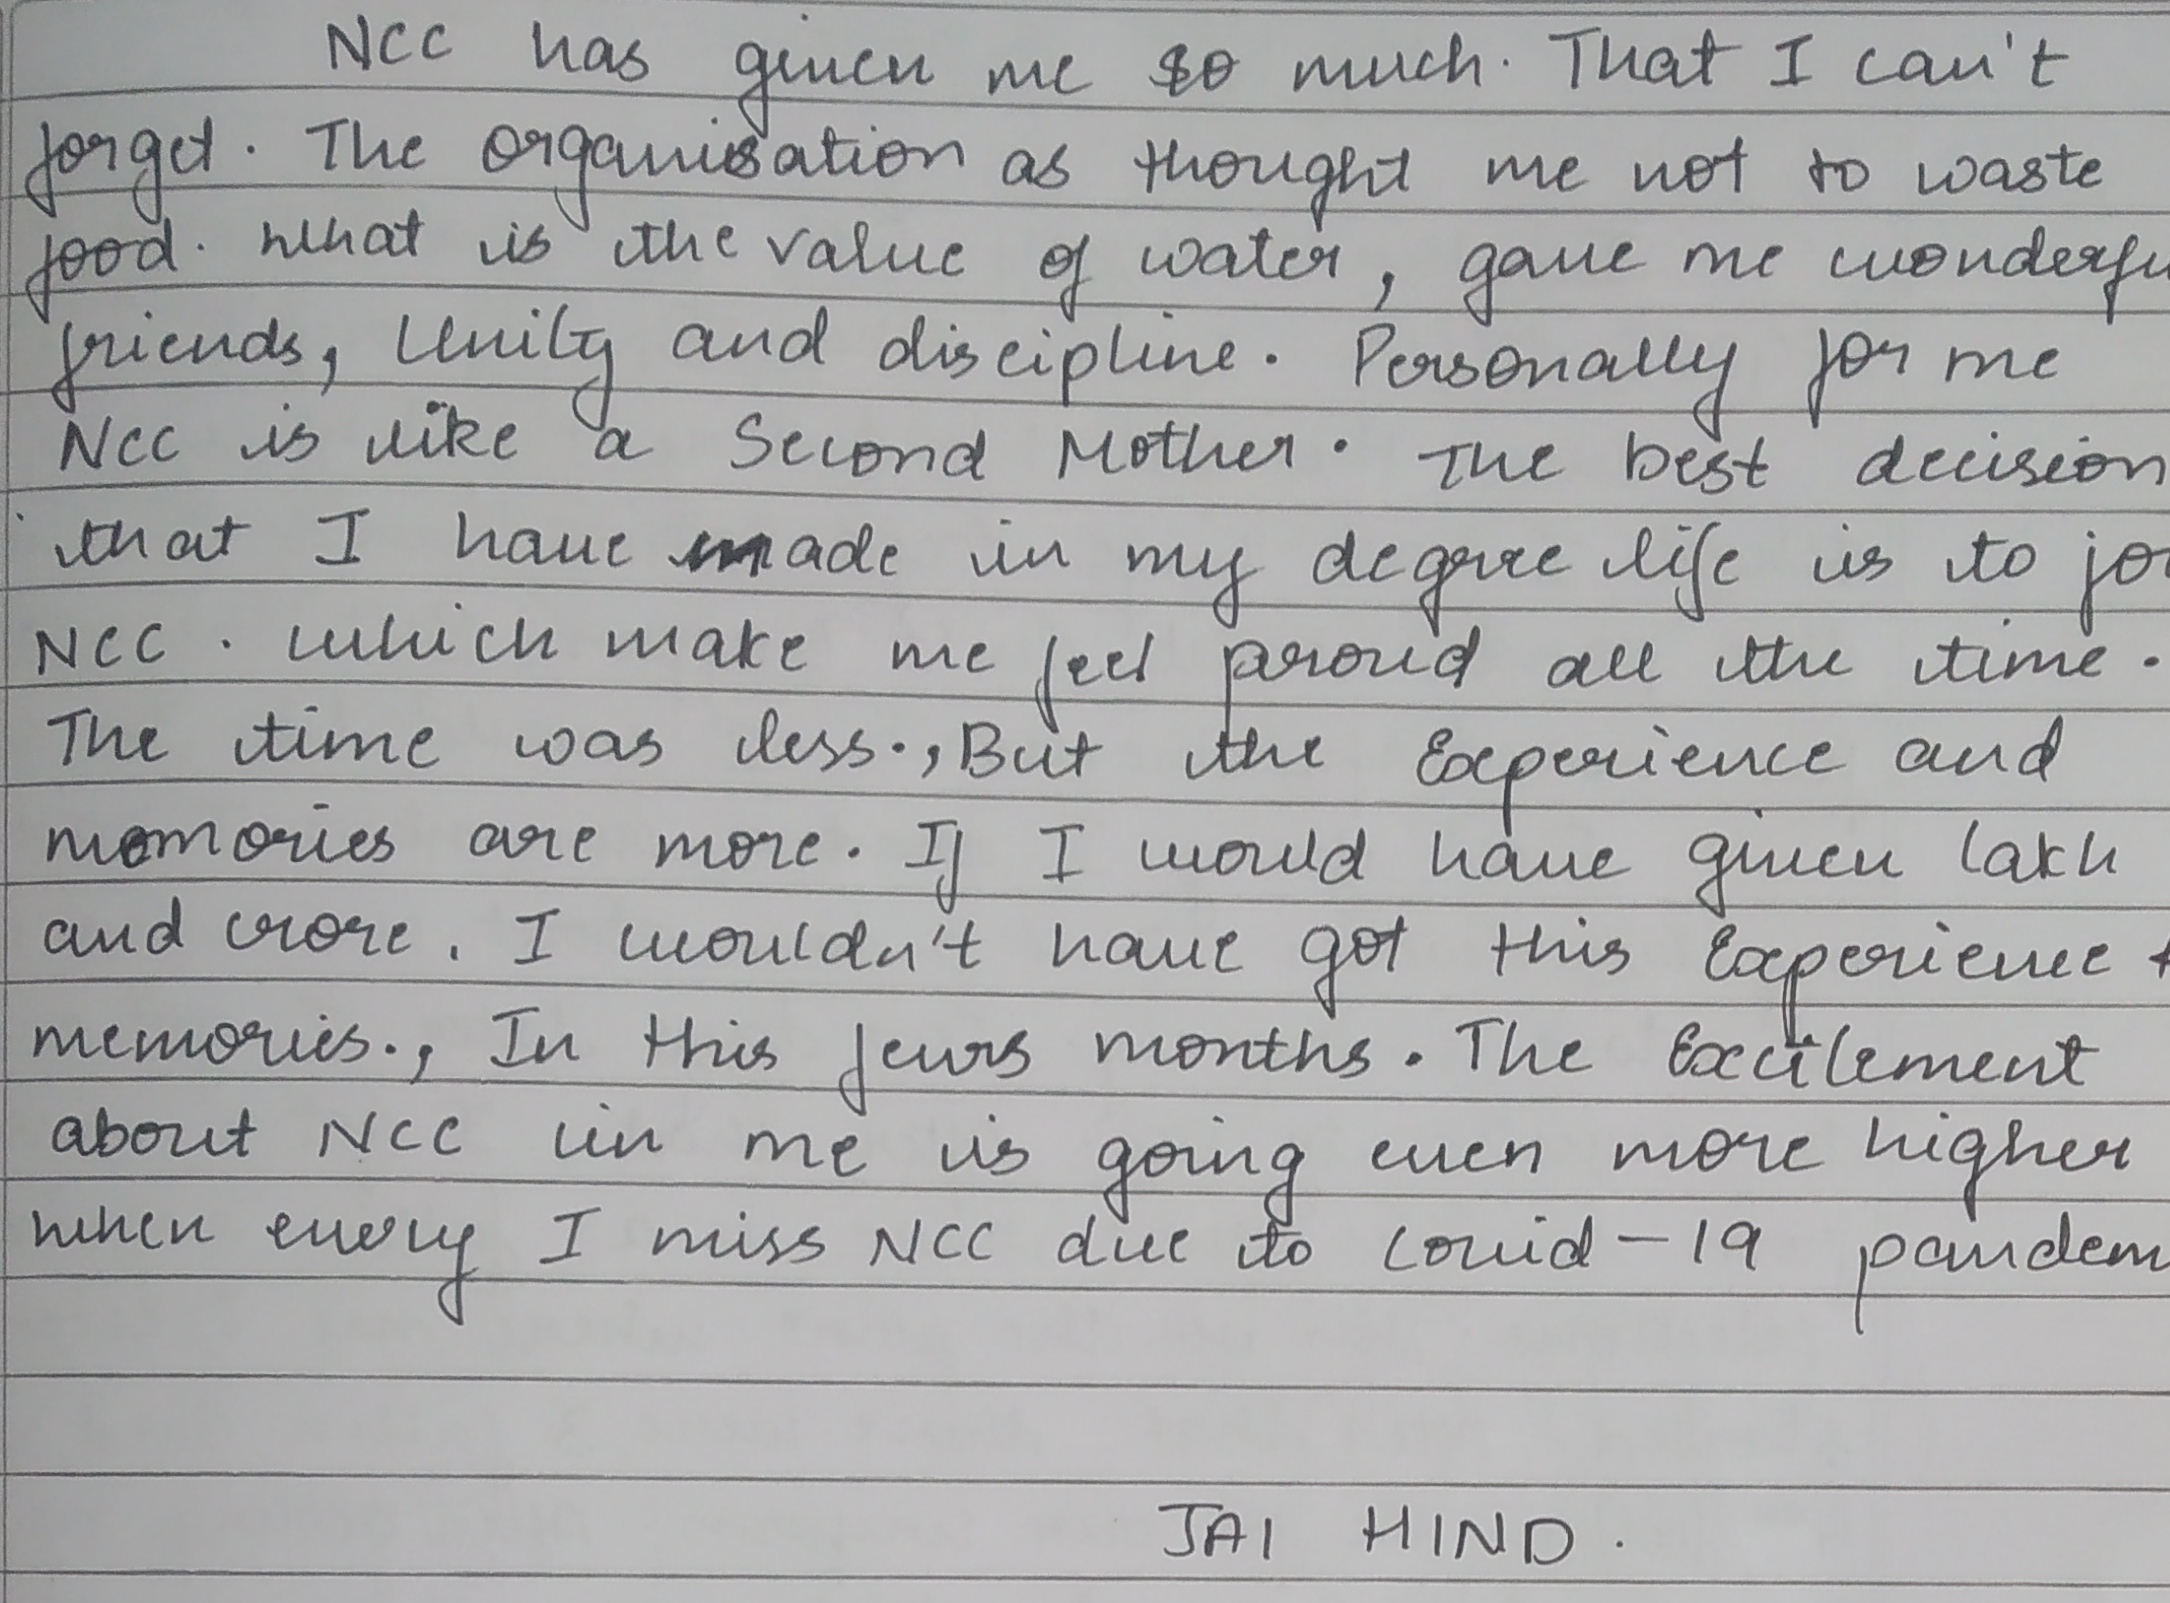 NCC has given me so much. That I can't
forget. The organisation as thought me not to waste
food. What is the value of water, gave me wonderfu
friends, Unity and discipline. Personally for me
NCC is like a Second Mother. The best decision
that I have made in my degree life is to jo
NCC. which make me feel proud all the time.
The time was less., But the Experience and
memories are more. If I would have given lakh
and crore. I wouldn't have got this Experience +
memories., In this fews months. The Excitement
about NCC in me is going even more higher
when every I miss NCC due to Covid-19 pandem
JAI HIND.